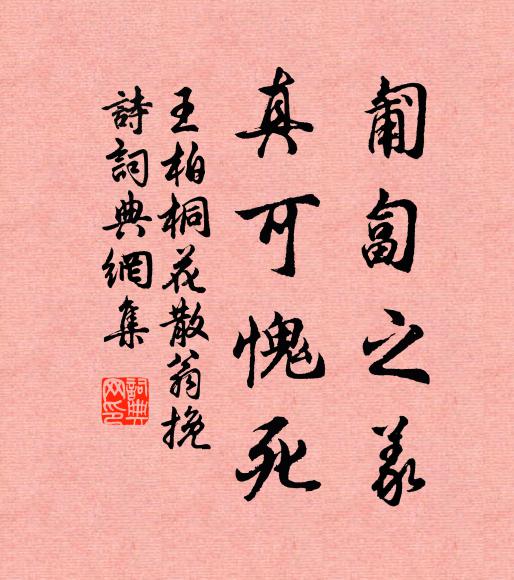 匍匐之义
真可愧死
王柏桐花散翁挽
詩詞典網集
詞典网印